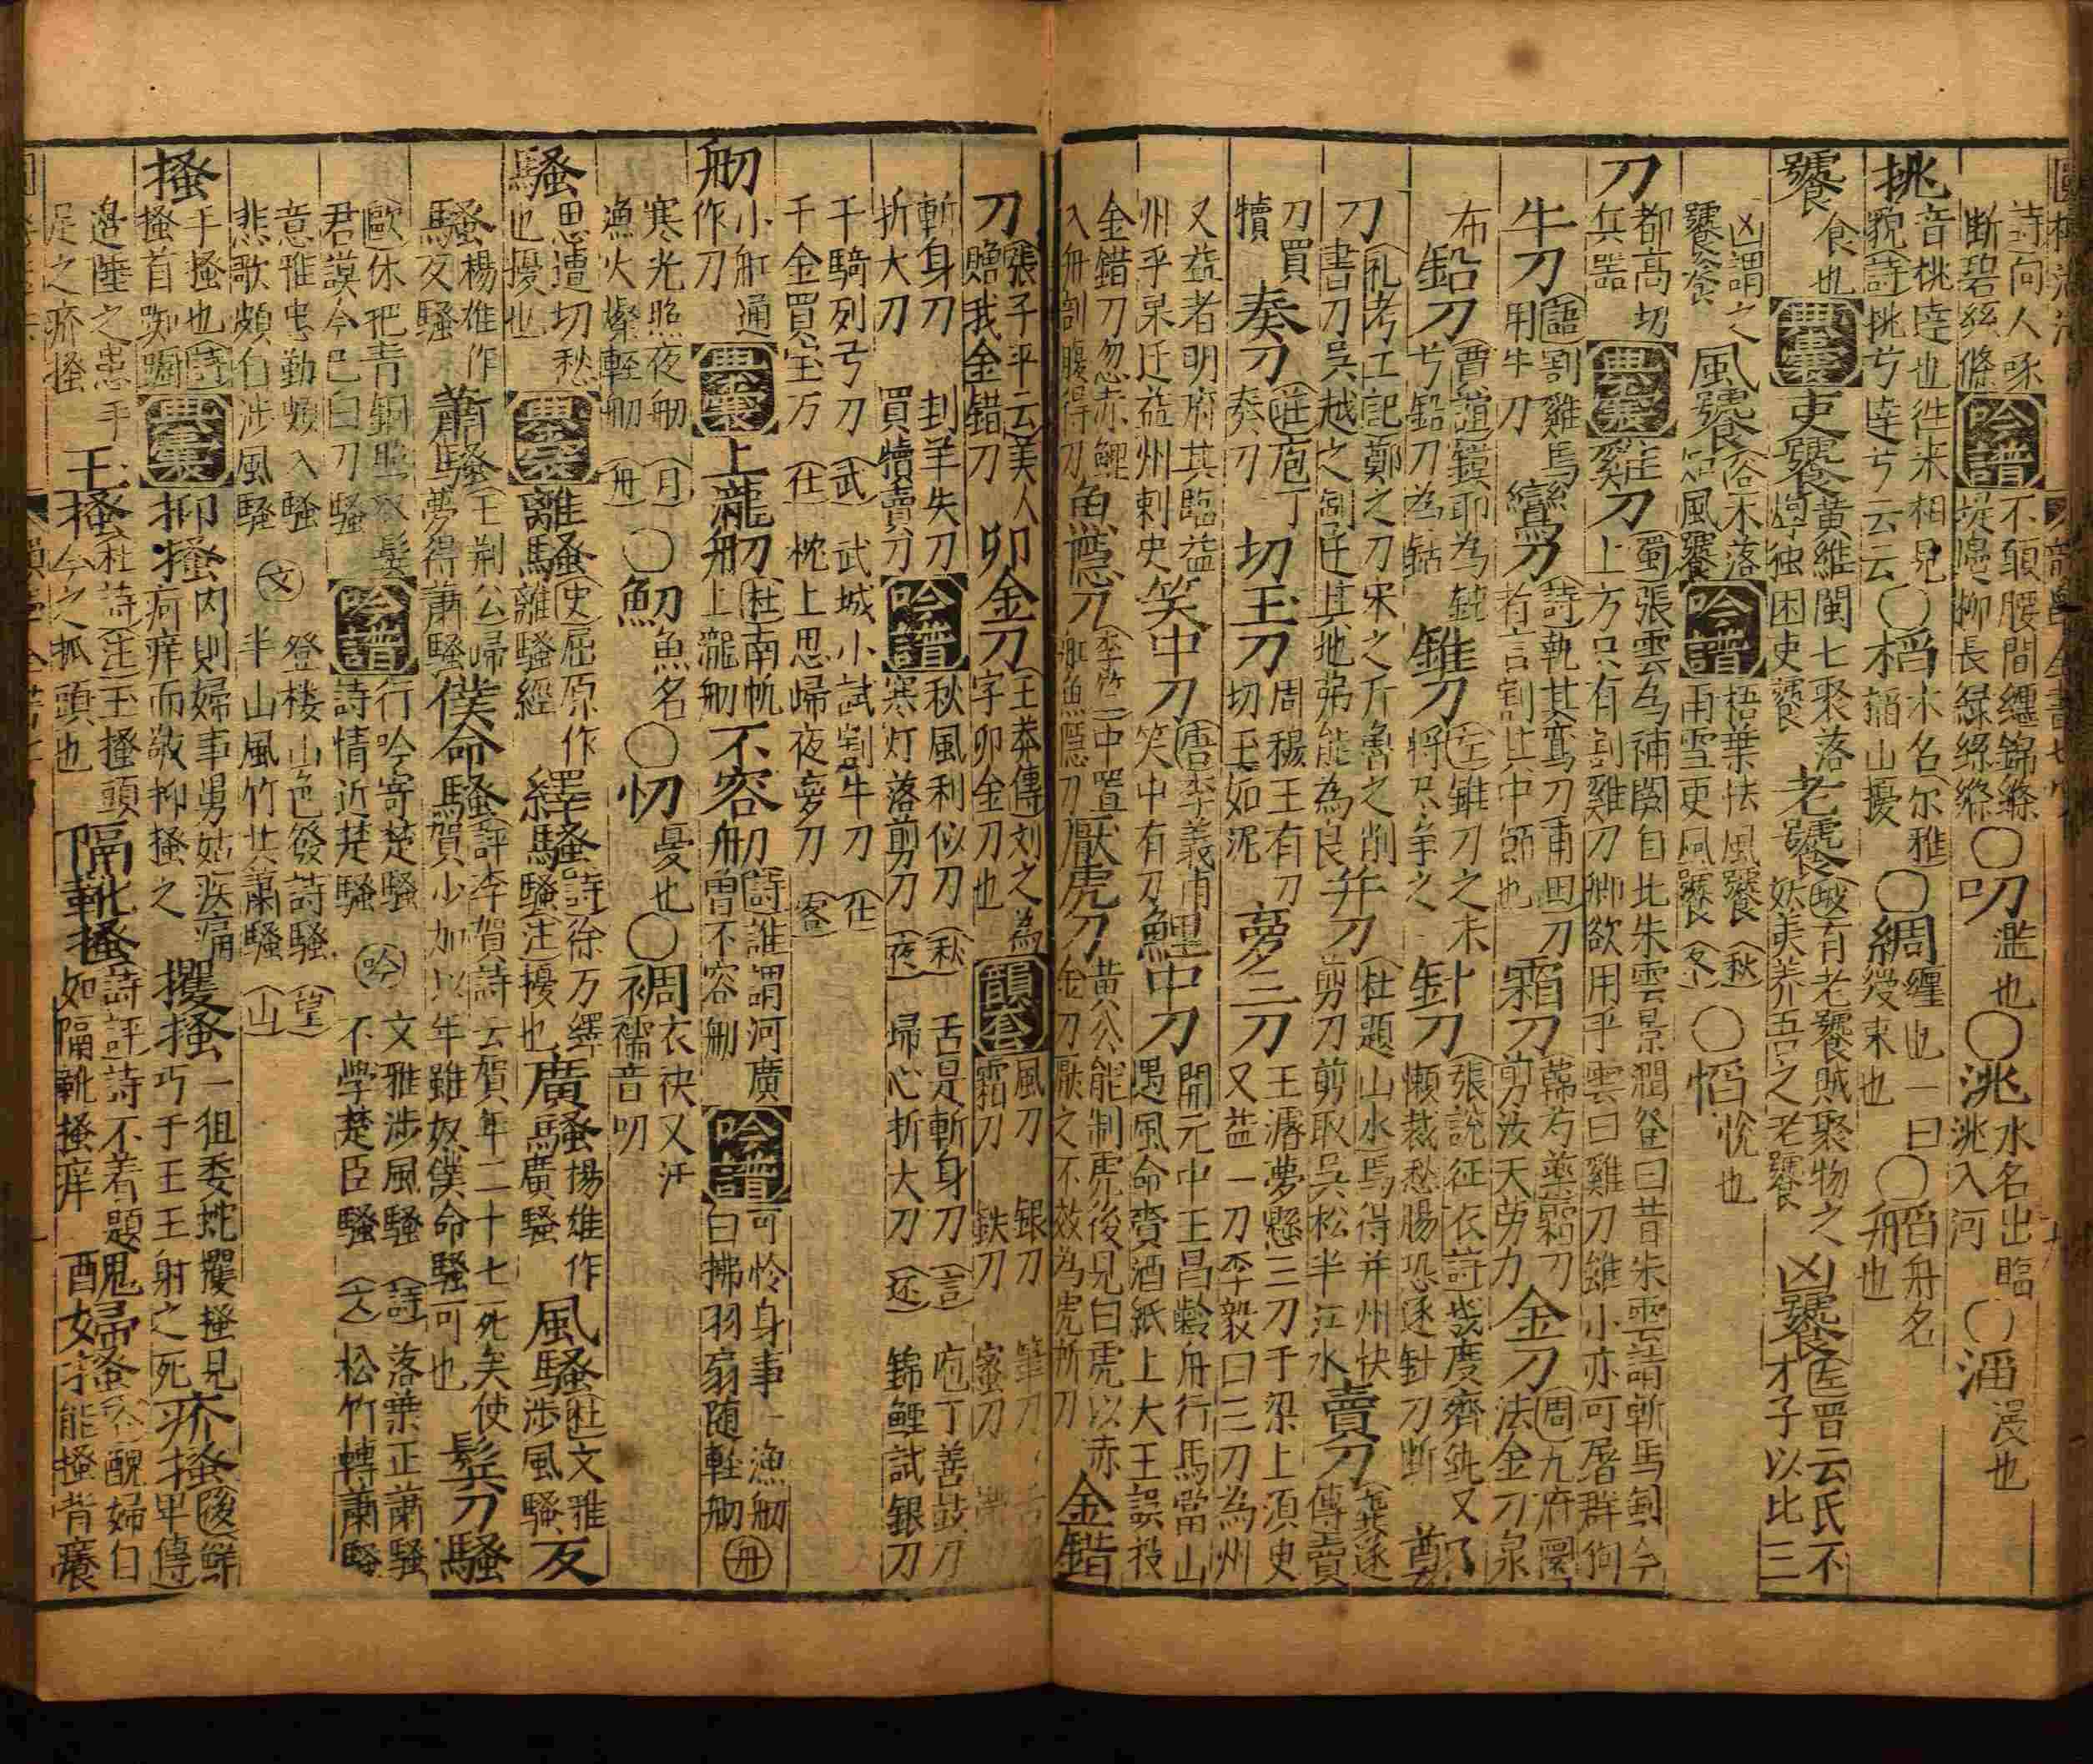 詩向人啄
断碧絲絛
吟譜
不須腰間纏錦絛
堤邊柳長緑絲絛
〇叨 濫也〇洮 水名出臨洮入河 〇㴞 漫也
挑 音桃達也徃来相見
貌詩挑兮達兮云云
〇槄 木名尔雅槄山榎
〇綢 纏也一曰綢繆束也
〇䑬 舟名 舟也
饕 食也
典裏
吏饕 黄維閩七聚落惸独困吏饕
老饕 坡有老饕賊聚物之妖美养五口之老饕
凶饕 左晋云氏不才子以比三
凶謂之饕餮
風饕 谷木落品風饕
吟譜
梧葉怯風饕 秋
雨雪更風饕 冬
〇慆 悦也
刀 都高切兵器
典裏
雞刀 蜀張雲為補闕自比朱雲景潤登曰昔朱雲請斬馬劍今
上方只有割雞刀卿欲用乎雲曰雞刀雖小亦可屠群狗
牛刀 語割雞焉用牛刀
鸞刀 詩執其鸞刀甫田刀有言割其中節也
霜刀 韓芍藥霜刀剪汝天劳力
金刀 周九府圜法金刀泉
布
鉛刀 賈誼鏌耶為鈍兮鉛刀為銛
錐刀 左錐刀之末将尽争之
針刀 張說征衣詩裁度齊紈又懒裁愁腸恐逐針刀断
鄭
刀 礼考工記鄭之刀宋之斤魯之削
書刀吳越之劍迁其地弗能為良
并刀 杜題山水焉得并州快剪刀剪取吳松半江水
賣刀 龔遂傳賣
刀買犢
奏刀 莊庖丁奏刀
切玉刀 周穆王有刀切玉如泥
夢三刀 王濬夢懸三刀于梁上須史又益一刀李毅曰三刀為州
又益者明府其臨益
州乎果迁益州刺史
笑中刀 唐李義甫笑中有刀
鯉中刀 開元中王昌齡舟行馬當山遇風命賷酒紙上大王誤投
金錯刀忽赤鯉
入舟剖腹得刀
魚隱刀 李竺二中置舡魚隱刀
厭虎刀 黄公能制虎後見白虎以赤金刀厭之不效為虎所
金錯
刀 張子平云美人贈我金錯刀
卯金刀 王莽傳刘之為字卯金刀也
韻套
風刀 銀刀 筆刀
霜刀 鉄刀 蜜刀
斬身刀 刲羊失刀
折大刀 買犢賣刀
吟譜
秋風利似刀 秋
寒灯落剪刀 夜
舌是斬身刀 言
帰心折大刀 还
庖丁善鼓刀
錦鯉試銀刀
千騎列弓刀 武
千金買宝万 仕
武城小試割牛刀 仕
枕上思帰夜夢刀 客
舠 小舡通作刀
典裏
上瀧舠 杜南帆舠上瀧舠
不容舠 詩誰謂河廣曾不容舠
吟譜
可怜身事一漁舠
白拂羽扇随軽舠 舟
寒光照夜舠 月
漁火燦軽舠 舟
〇魛 魚名〇忉 憂也〇裯 衣袂又汗襦音叨
騷 思遭切愁也擾也
典裏
離騷 史屈原作離騷經
繹騷 詩徐方繹騷注擾也
廣騷 揚雄作廣騷
風騷 杜文雅涉風騷
反
騷 楊雄作反騷
蕭騷 王荆公帰夢得蕭騷
僕命騷 評李賀詩云賀年二十七死矣使賀少加以年雖奴僕命騷可也
鬂刀騷
歐休把青銅照双鬓
君謨今巳白刀騷
吟譜
行吟寄楚騷 吟
詩情近楚騷
文雅涉風騷 詩
不学楚臣騷
落葉正蕭騷
松竹轉蕭騷
意雅忠勤嫉入騷 文
悲歌頗自涉風騷
登楼山色發詩騷 望
半山風竹共蕭騷 山
搔 手搔也詩搔首踟蹰
典裏
抑搔 内則婦事舅姑疾痛疴痒而敬抑搔之
攫搔 一徂委蛇攫搔見巧于王王射之死
疥搔 後鮮卑傳
邉陲之患手足之疥搔
玉搔 杜詩注玉搔頭今之抓頭也
隔靴搔 詩評詩不着題如隔靴搔痒
醜婦搔 谷醜婦臼能搔背癢